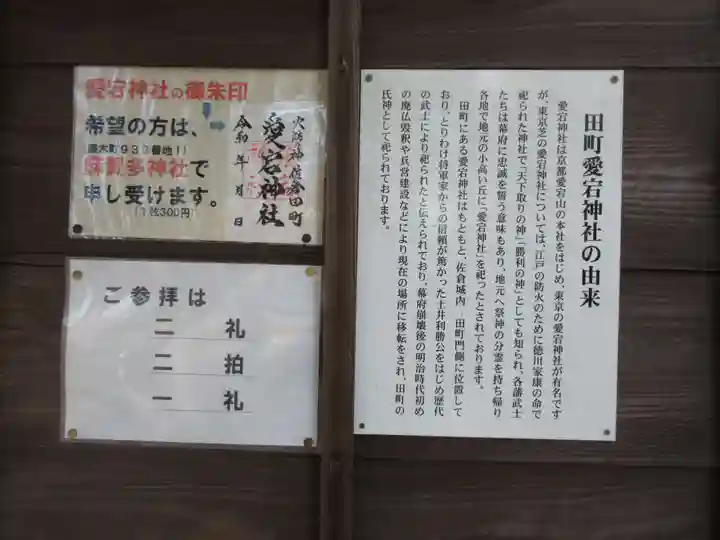 田町愛宕神社の由来
愛宕神社は京都愛宕山の本社をはじめ、東京の愛宕神社が有名です
が、東京芝の愛宕神社については、江戸の防火のために徳川家康の命で
祀られた神社で「天下取りの神」「勝利の神」としても知られ、各藩武士
たちは幕府に忠誠を誓う意味もあり、地元へ祭神の分霊を持ち帰り
各地で地元の小高い丘に「愛宕神社」を祀ったとされております。
田町にある愛宕神社はもともと、佐倉城内 田町門側に位置して
おり、とりわけ将軍家からの信頼が篤かった土井利勝公をはじめ歴代
の武士により祀られたと伝えられており、幕府崩壊後の明治時代初め
の廃仏毀釈や兵営建設などにより現在の場所に移転をされ、田町の
氏神として祀られております。
愛宕神社の御朱印
希望の方は、
鏑木町933番地11
麻賀多神社で
申し受けます。
(1体300円)
火防の神 佐倉田町
愛宕神社
令和 年 月 日
ご参拝は
二 礼
二 拍
一 礼